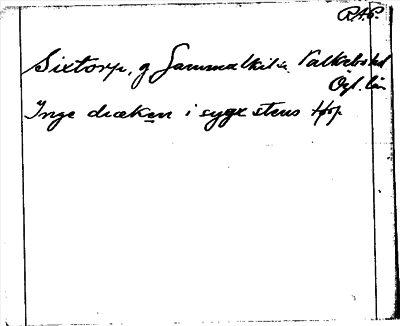 R.A.P.
Sixtorp, g Gammalkil sn. Valkebo hd
Ögl. län
Inge dræken i sygx stens Hop